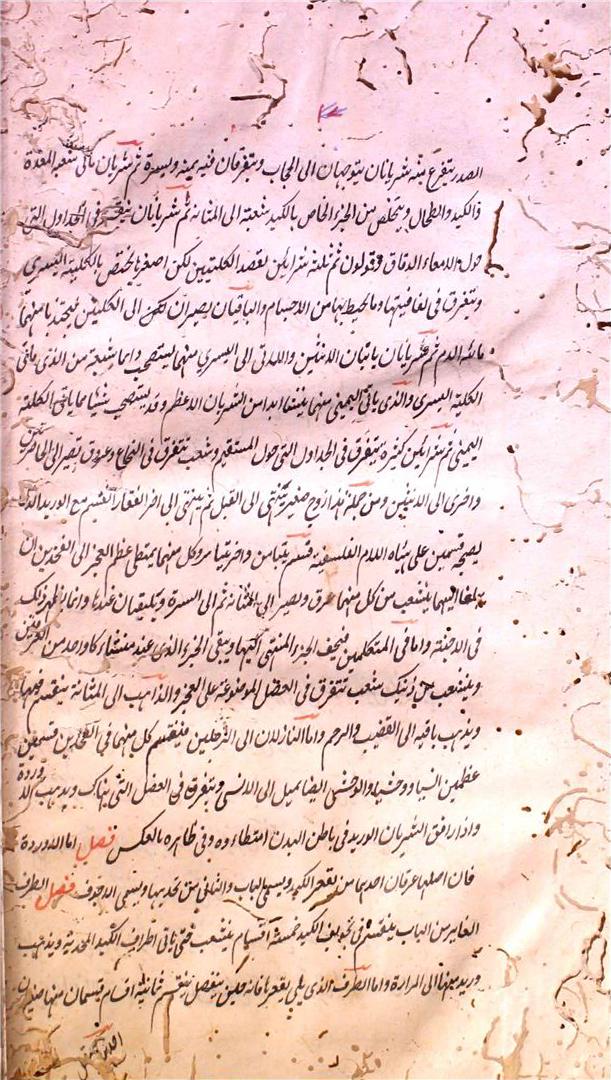 الصدر يتفرع منه شريانان يتوجهان الى الحجاب ويتفرقان فيه يمنة ويسرة ثم شريان تاتى شعبه المعدة
والكبد والطحال ويتخلص من الجزء الخاص بالكبد شعبة الى المثانة ثم شريانان يتفرق فى الجداول التى
حول الامعاء الدقاق وقولون ثم ثلثة شرايين لقصد الكليتين لكن اصغرها يختص بالكلية اليسرى
ويتفرق فى لفافتيها وما يحيط بها من الاجسام والباقيان يصيران الى الكليتين ليجتذبا منهما
مائية الدم ثم شريانان ياتيان الانثيين والاتى الى اليسرى منهما يستصحب دايما شعبة من الذى ياتى
الكلية اليسرى والذى ياتى اليمنى منهما ينشا ابدا من الشريان الاعظم وقد يستصحب شيئا مما ياتى الكلية
اليمنى ثم شرايين كثيرة يتفرق فى الجداول التى حول المستقيم وشعب تتفرق فى النخاع وعروق تصير الى الخاصرتين
واخرى الى الانثيين ومن جملة هذا زوج صغير ينتهى الى القبل ثم ينتهى الى اخر الفقار انقسم مع الوريد الذى
يصحبه قسمين على هياة اللام قسم يتيامن واخر يتياسر وكل منهما يمتطى عظم العجز الى الفخذين
بلغا اليهما يتشعب من كل منهما عرق ويصير الى المثانة ثم الى السرة ويلتقيان عندها وانما يظهر ذلك
فى الاجنة واما فى المتكلمين فيجف الجزء المنتهى اليها ويبقى الجزء الذى عند منشئه كاواحد من العرقين
ويتشعب من ذينك شعب تتفرق فى العضل الموضوعة على العجز والذاهب الى المثانة ينقسم فيها
ويذهب باقيه الى القضيب والرحم واما النازلان الى الرجلين فينقسم كل منهما فى الفخذين قسمين
عظمين انسيا ووحشيا والوحشى ايضا يميل الى الانسى ويتفرق فى العضل التى هناك ويذهب
واذا رافق الشريان الوريد فى باطن البدن امتطاه وفى ظاهره بالعكس فصل اما الاوردة
فان اصلها عرقان احدهما من تقعر الكبد ويسمى الباب والثانى من تحدبها ويسمى الاجوف فصل الطرف
الغاير من الباب ينقسم فى تجويف الكبد خمسة اقسام يتشعب حتى ياتى اطراف الكبد المحدبة ويذهب
وريد منها الى المرارة واما الطرف الذى يلى تقعرها فانه حين ينفصل ينقسم ثمانية اقسام قسمان منها صغيران